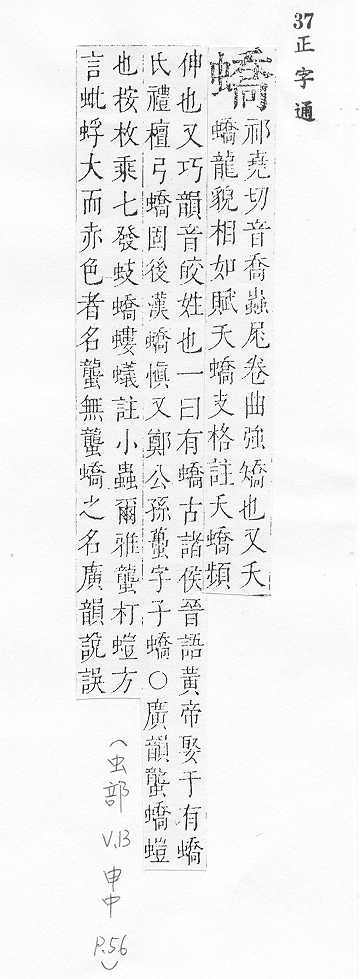 37 正字通
蟜
祁堯切音喬蟲尾卷曲強矯也又夭
蟜龍貌相如賦夭蟜支格註夭蟜頻
伸也又巧韻音皎姓也一曰有蟜古諸侯晉語黃帝娶于有蟜
氏禮檀弓蟜固後漢蟜愼又鄭公孫蠆字子蟜○廣韻蠪蟜螘
也按枚乘七發蚑蟜螻蟻註小蟲爾雅蠪朾螘方
言蚍蜉大而赤色者名蠪無蠪蟜之名廣韻說誤
(虫部 V.13 申中 P.56)